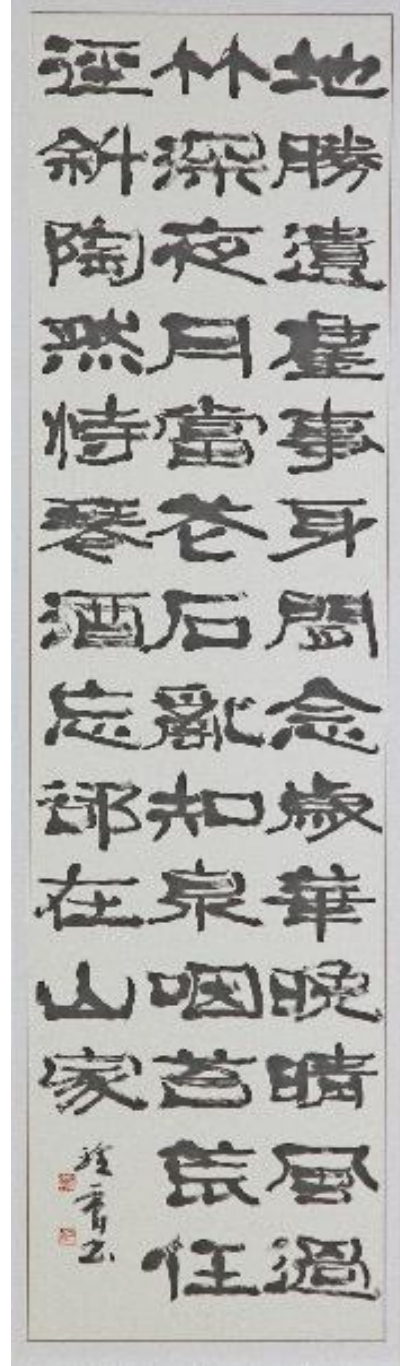 地勝遺塵事身閒念歲華晚晴風過
竹深夜月當花石亂知泉咽苔荒任
徑斜陶然恃琴酒忘卻在山家